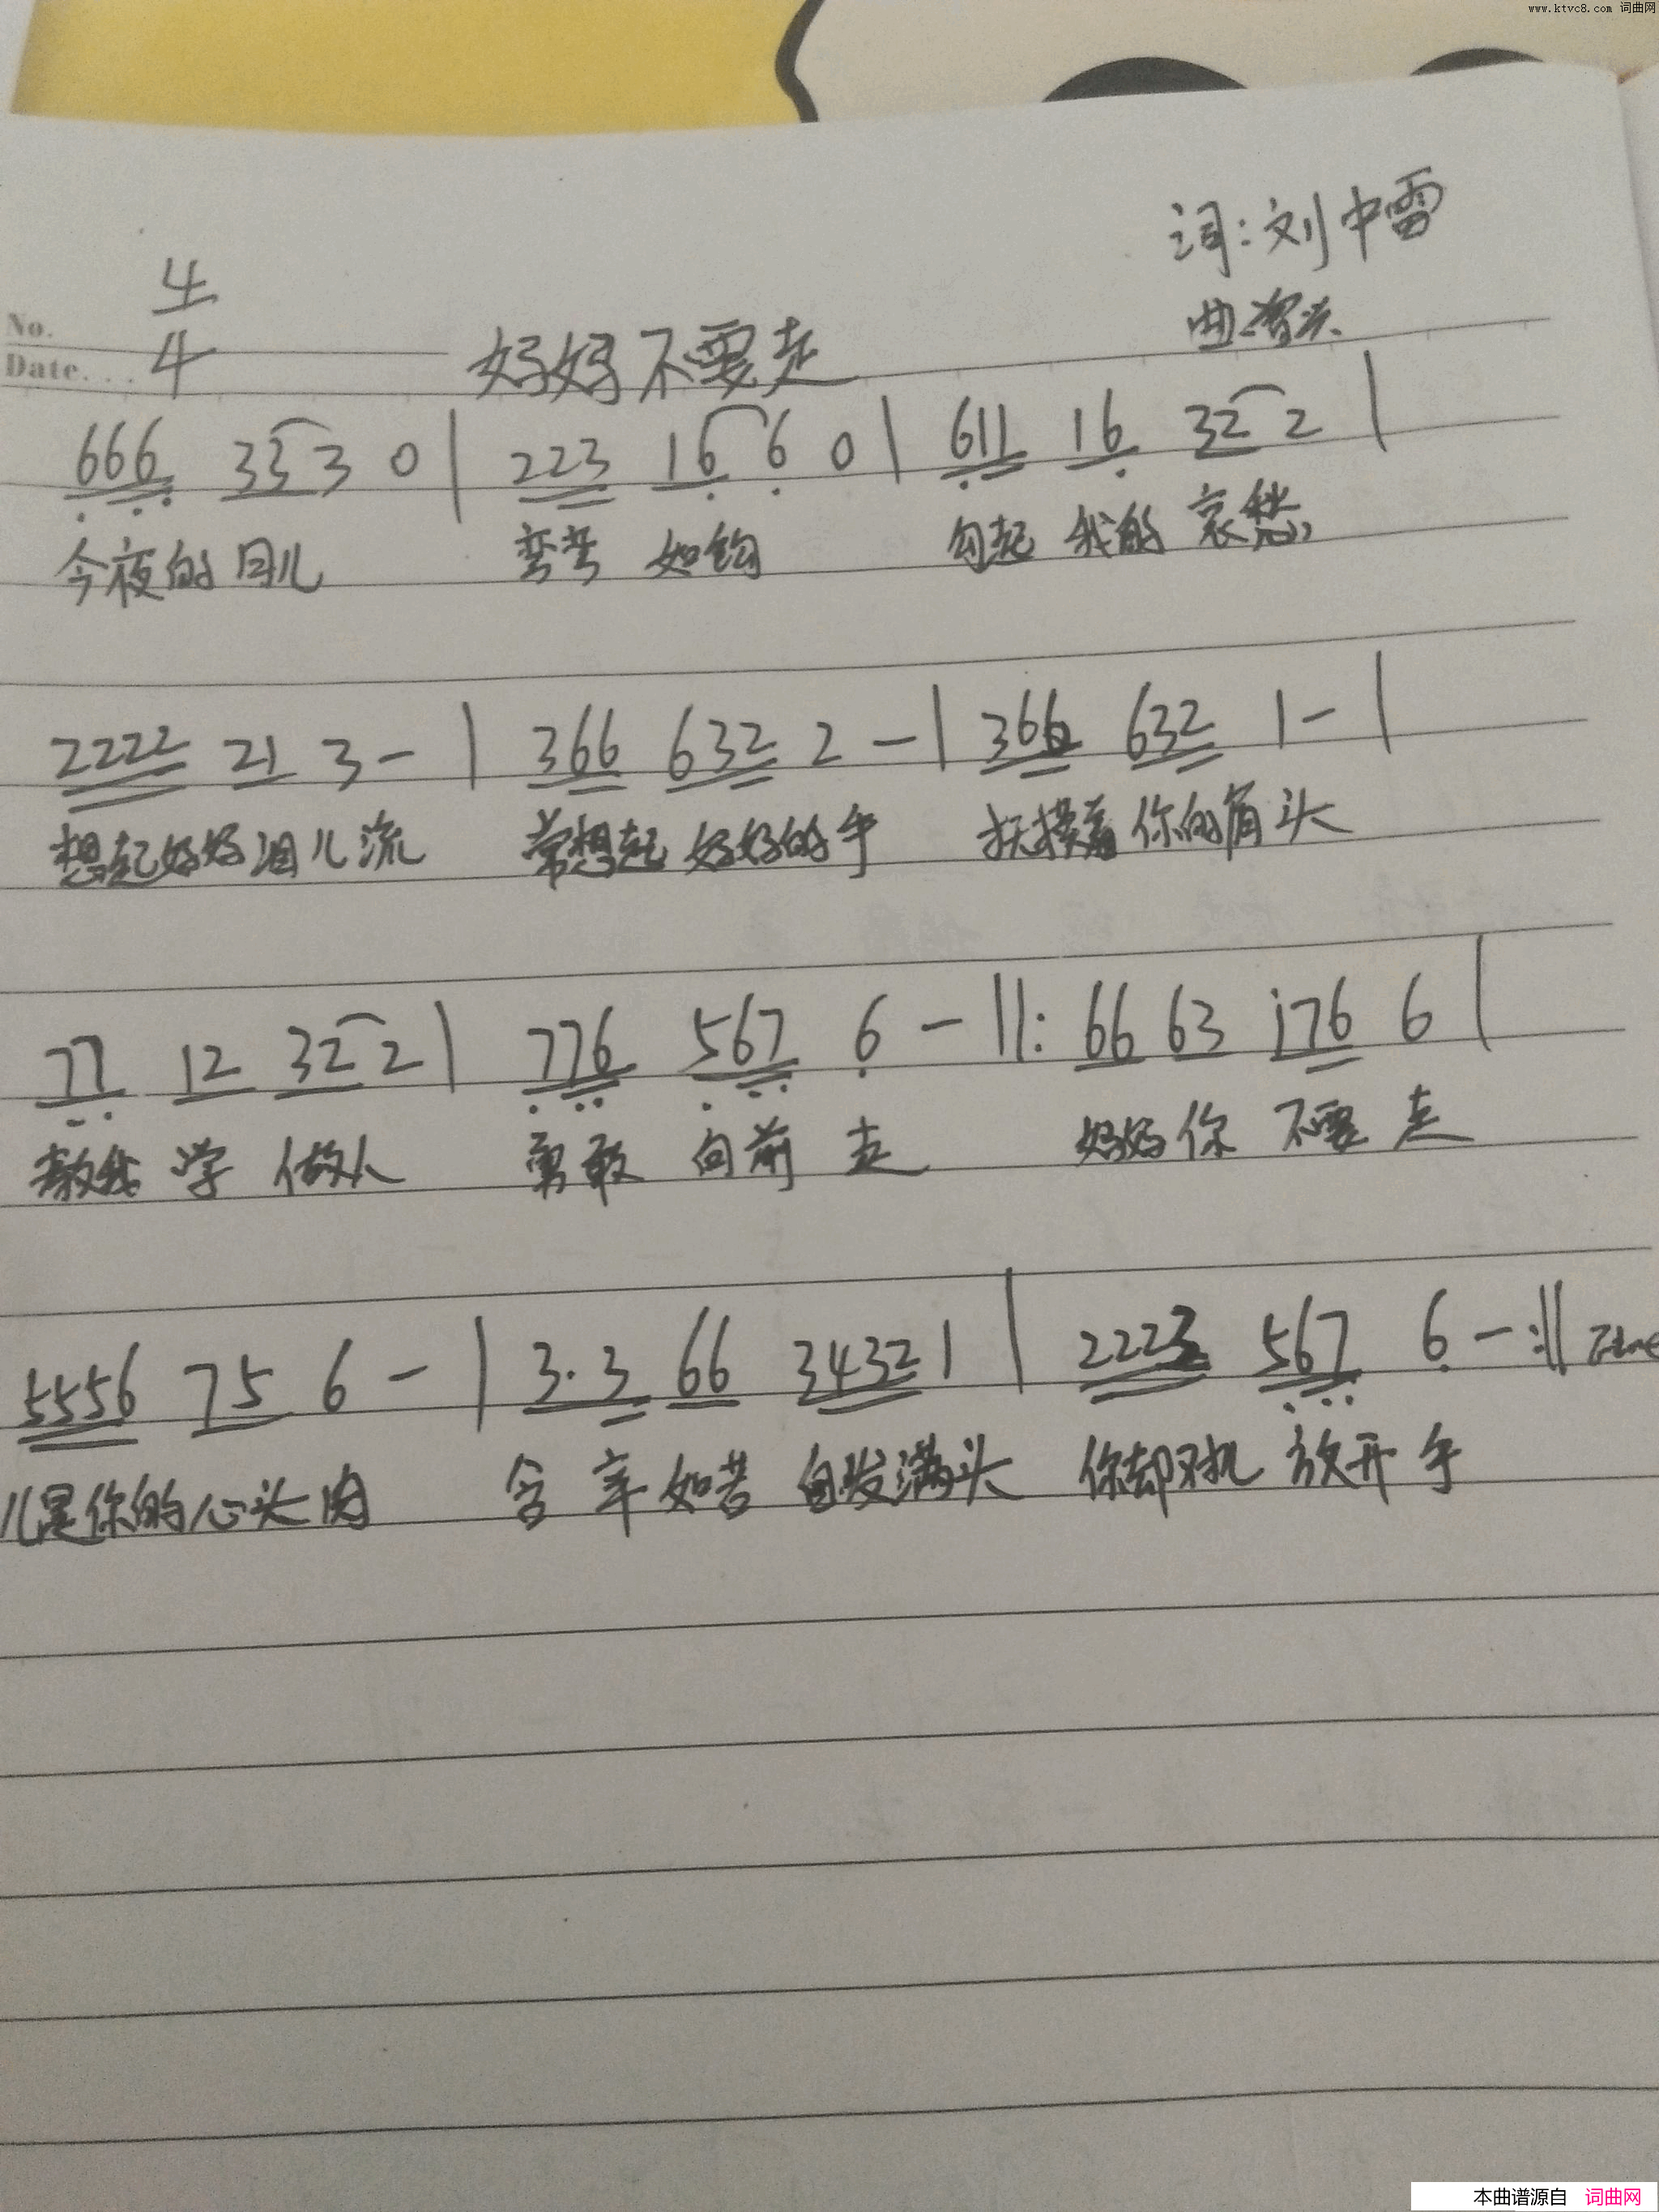 www.ktvc8.com 词曲网
词:刘中雷
4
No.
Date...
4
妈妈不要走
曲:
666 335 3 0 | 223 16 6 0 | 611 16 32 2 |
今夜的月儿 弯弯 如钩 勾起 我的 哀愁
2222 21 3 - | 366 632 2 - | 366 632 1 - |
想起妈妈泪儿流 常想起 妈妈的手 抚摸着 你的肩头
77 12 32 2 | 776 567 6 - ||: 66 63 i76 6 |
教我 学 做人 勇敢 向前 走 妈妈你 不要 走
5556 75 6 - | 3.3 66 3432 1 | 2223 567 6 - :||
儿是你的心头肉 含 辛 如苦 白发满头 你却对我 放开手
本曲谱源自 词曲网